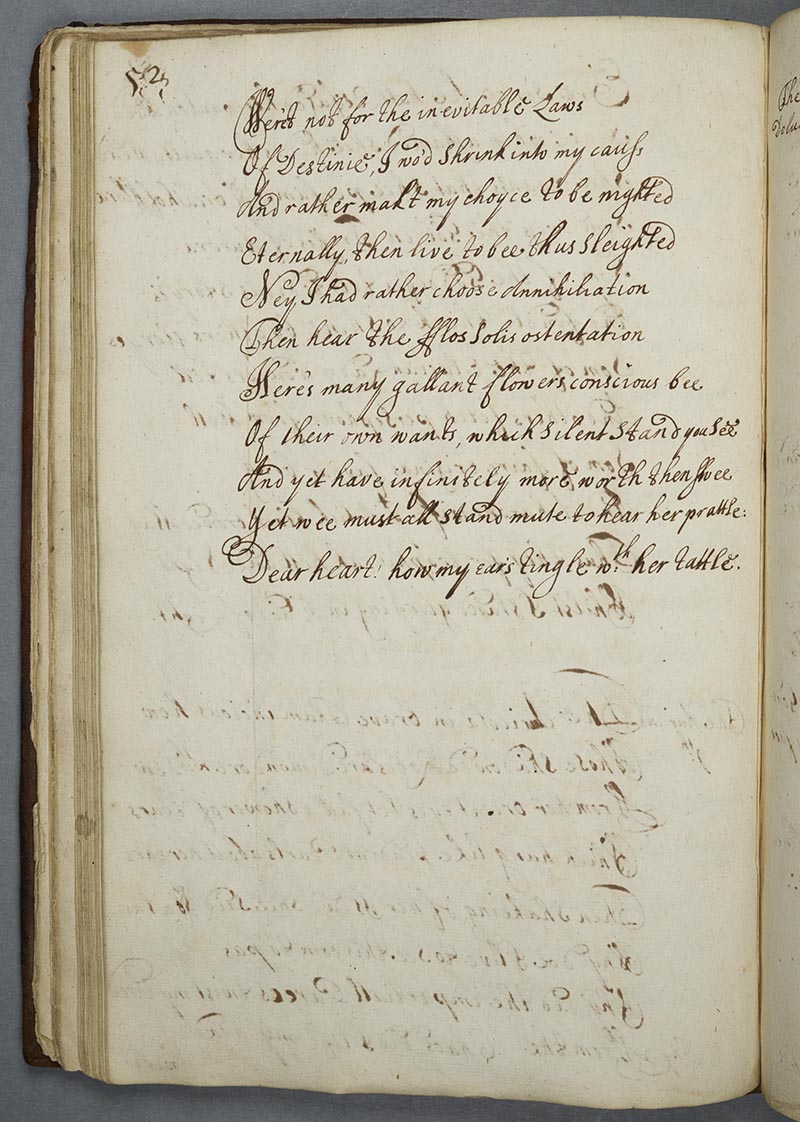 52
Wer't not for the inevitable Laws
Of Destinie, I wo'd shrink into my cause
And rather make my choyce to be nighted
Eternally, then live to bee thus sleighted
Ney I had rather choose Annihiliation
Then hear the fflos solis ostentation
Here's many gallant flowers conscious bee
Of their own wants, which silent stand you see
And yet have infinitely more worth then
Yet wee must all stand mute to hear her prattle:
Dear heart! how my ears tingle wth her tattle.
The